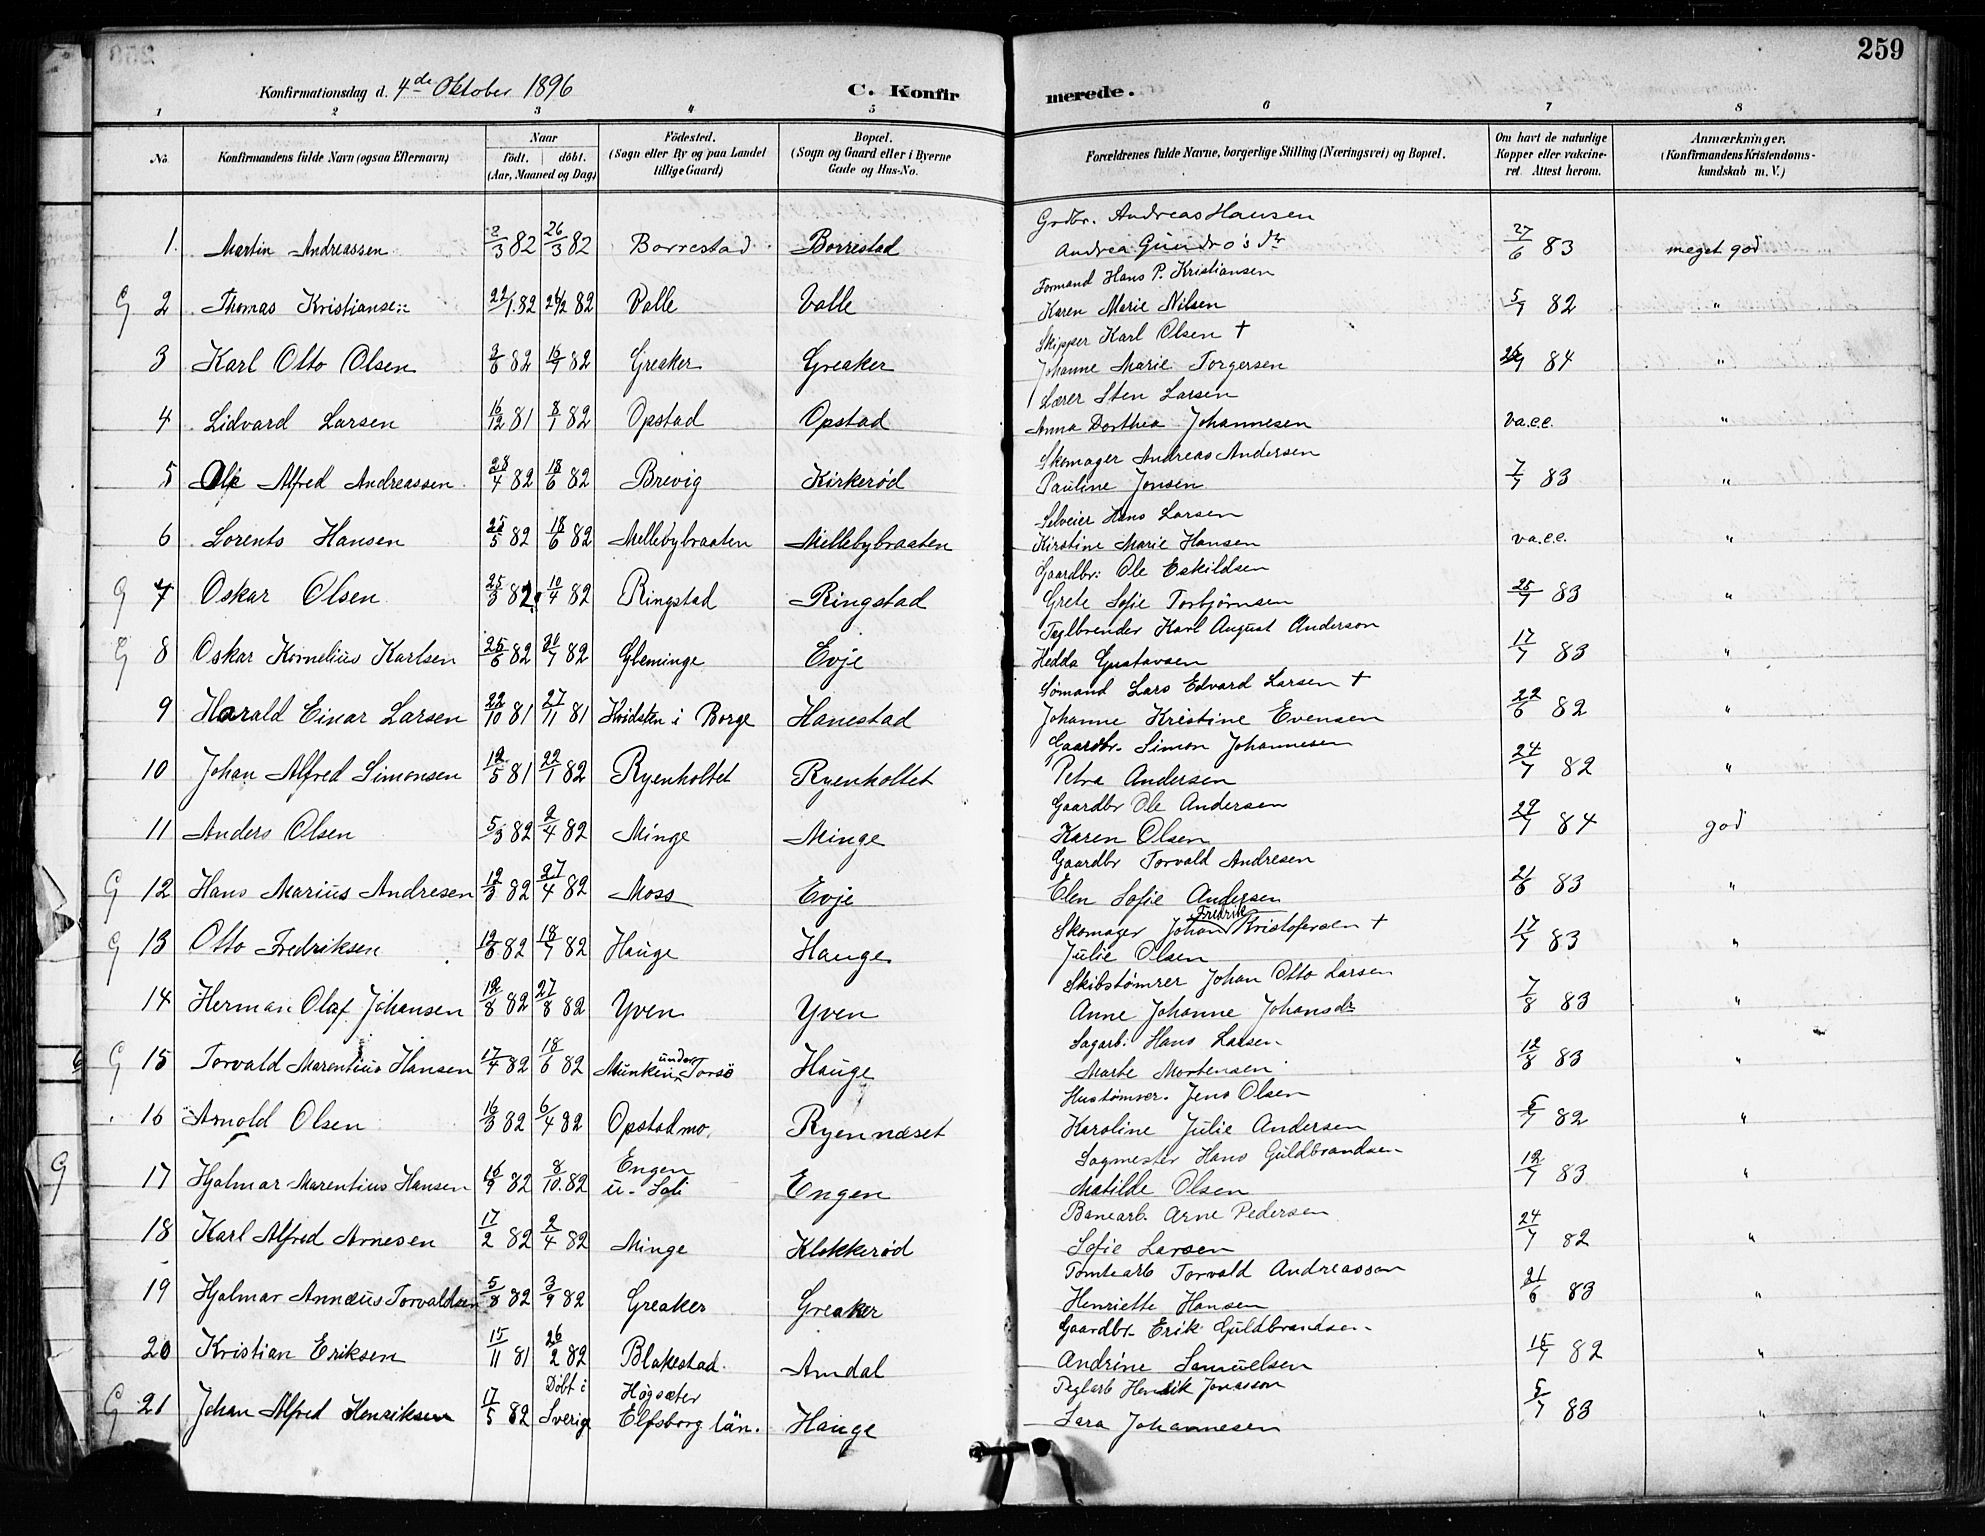 259
Konfirmationsdag d. 4de Oktober 1896 C. Konfirmerede.
1 2 3 4 5 6 7 8
No. Konfirmandens fulde Navn (ogsaa Efternavn) Naar født. døbt. (Aar, Maaned og Dag) Fødested. (Sogn eller By og paa Landet tillige Gaard) Bopæl. (Sogn og Gaard eller i Byerne Gade og Hus-No. Forældrenes fulde Navne, borgerlige Stilling (Næringsvei) og Bopæl. Om havt de naturlige Kopper eller vakcineret. Attest herom. Anmærkninger, (Konfirmandens Kristendomskundskab m. V.)
Grdbr. Andreas Hansen
1. Martin Andreassen 2/3 82 26/3 82 Borrestad Borrestad Andrea Gundro's dtr 27/6 83 meget god
Formand Hans P. Kristiansen
G 2 Thomas Kristiansen 22/1 82 26/2 82 Valle Valle Karen Marie Nilsen 5/7 82 "
Skipper Karl Olsen †
3 Karl Otto Olsen 2/6 82 16/7 82 Greaker Greaker Johanne Marie Torgersen 84 "
Lærer Sten Larsen
4 Lidvard Larsen 16/12 81 8/1 82 Opstad Opstad Anna Dorthea Johannesen vacc. "
Skomager Andreas Andersen
5 Ole Alfred Andreassen 28/4 82 18/6 82 Brevig Kirkerød Pauline Jonsen 7/7 83 "
Selveier Hans Larsen
6 Lorents Hansen 25/5 82 18/6 82 Mellebybraaten Mellebybraaten Kirstine Marie Hansen vacc. "
Gaardbr: Ole Eskildsen
G 7 Oskar Olsen 25/3 82 10/4 82 Ringstad Ringstad Grete Sofie Torbjørnsen 25/7 83 "
Teglbrender Karl August Anderson
G 8 Oskar Kornelius Karlsen 25/6 82 82 Gleminge Evje Hedda Gustavsen 17/7 83 "
Sømand Lars Edvard Larsen †
9 Harald Einar Larsen 22/10 81 27/11 81 Hvidsten i Borge Hanestad Johanne Kristine Evensen 22/6 82 "
Gaardbr. Simon Johannesen
10 Johan Alfred Simonsen 12/5 81 22/1 82 Ryenholtet Ryenholtet Petra Andersen 24/7 82 "
Gaardbr Ole Andersen
11 Anders Olsen 5/3 82 2/4 82 Minge Minge Karen Olsen 29/7 84 god
Gaardbr Torvald Andresen
G 12 Hans Marius Andresen 12/3 82 27/4 82 Moss Evje Elen Sofie Andersen 21/6 83 "
Skomager Johan Fredrik Kristofersen †
G 13 Otto Fredriksen 12/6 82 18/7 82 Hauge Hauge Julie Olsen 17/7 83 "
Skibstømrer Johan Otto Larsen
14 Herman Olaf Johansen 12/8 82 27/8 82 Yven Yven Anne Johanne Johansdr 7/8 83 "
Sagarb. Hans Larsen
G 15 Torvald Marentius Hansen 17/4 82 18/6 82 Munken under Torsø Hauge Marte Mortensen 12/8 83 "
Hustømrer. Jens Olsen
16 Arnold Olsen 16/3 82 6/4 82 Opstadmo. Ryennæset Karoline Julie Andersen 5/7 82 "
Sagmester Hans Guldbrandsen
G 17 Hjalmar Marentius Hansen 16/9 82 8/10 82 Engen u. Soli Engen Matilde Olsen 12/7 83 "
Banearb. Arne Pedersen
18 Karl Alfred Arnesen 17/2 82 2/4 82 Minge Klokkerød Sofie Larsen 24/7 82 "
Tomtearb Torvald Andreassen
19 Hjalmar Annæus Torvaldsen 5/8 82 3/9 82 Greaker Greaker Henriette Hansen 21/6 83 "
Gaardbr. Erik Guldbrandsen
20 Kristian Eriksen 15/11 81 26/2 82 Blakestad Amdal Andrine Samuelsen 15/7 82 "
Teglarb Henrik Jonasson
G 21 Johan Alfred Henriksen 17/5 82 Døbt i Sverige Högsæter Elfsborg län. Hauge Sara Johannesen 5/7 83 "